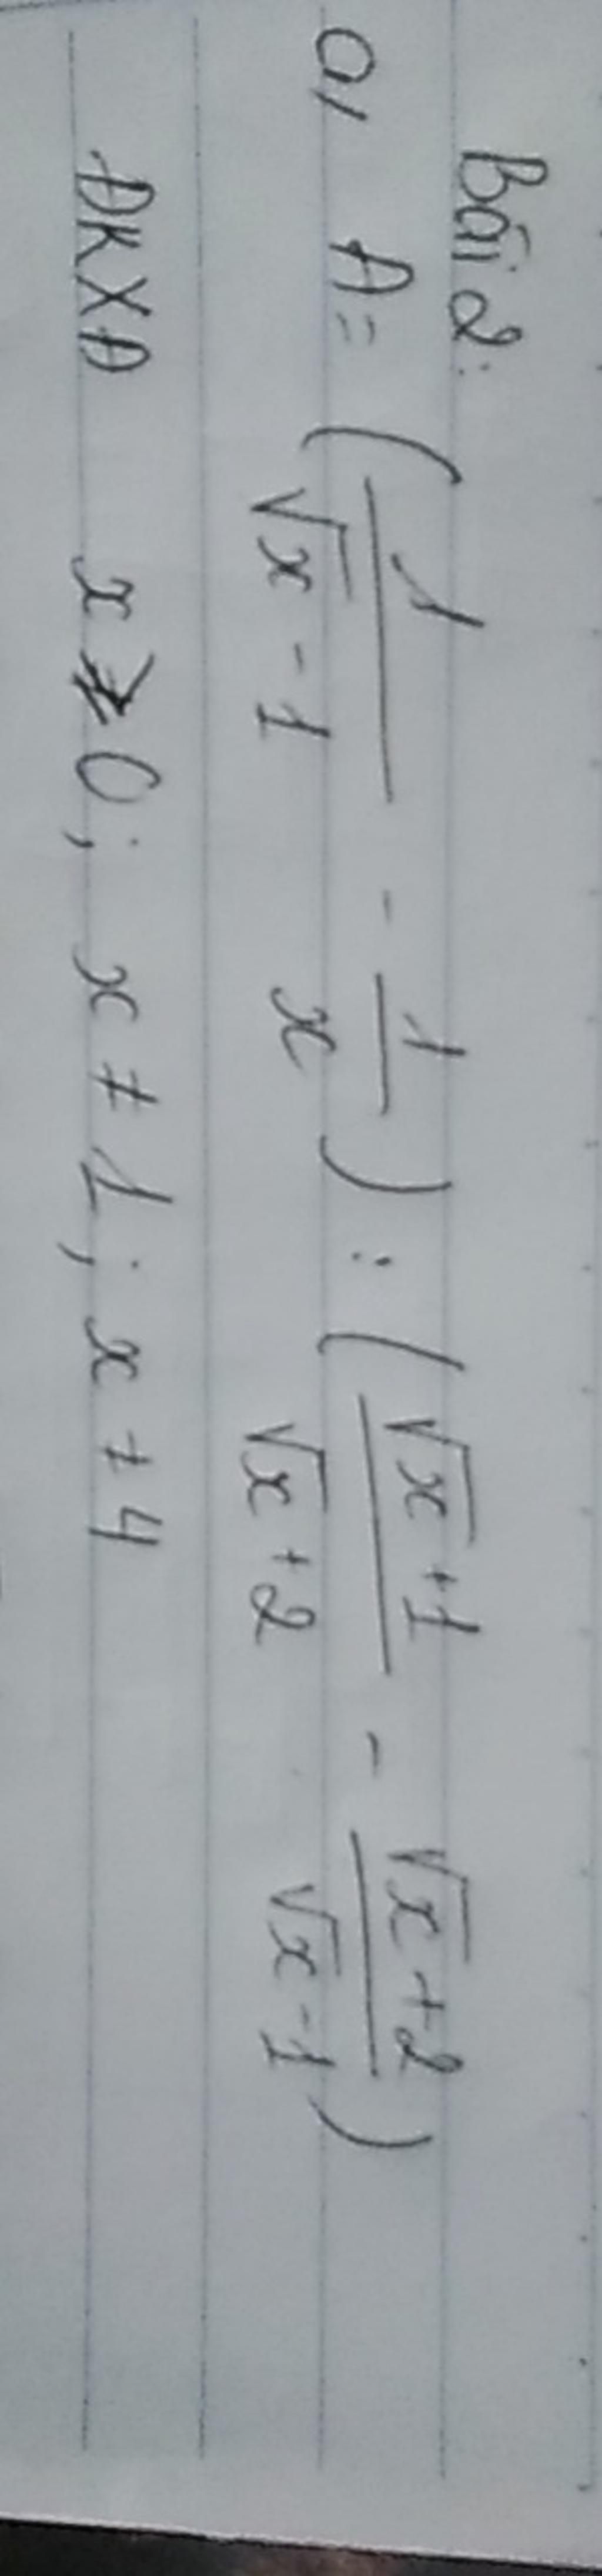 Bài 2:
a, A = (1/(√x - 1) - 1/x) : ((√x + 1)/(√x + 2) - (√x + 2)/(√x - 1))
ĐKXĐ x > 0; x ≠ 1; x ≠ 4